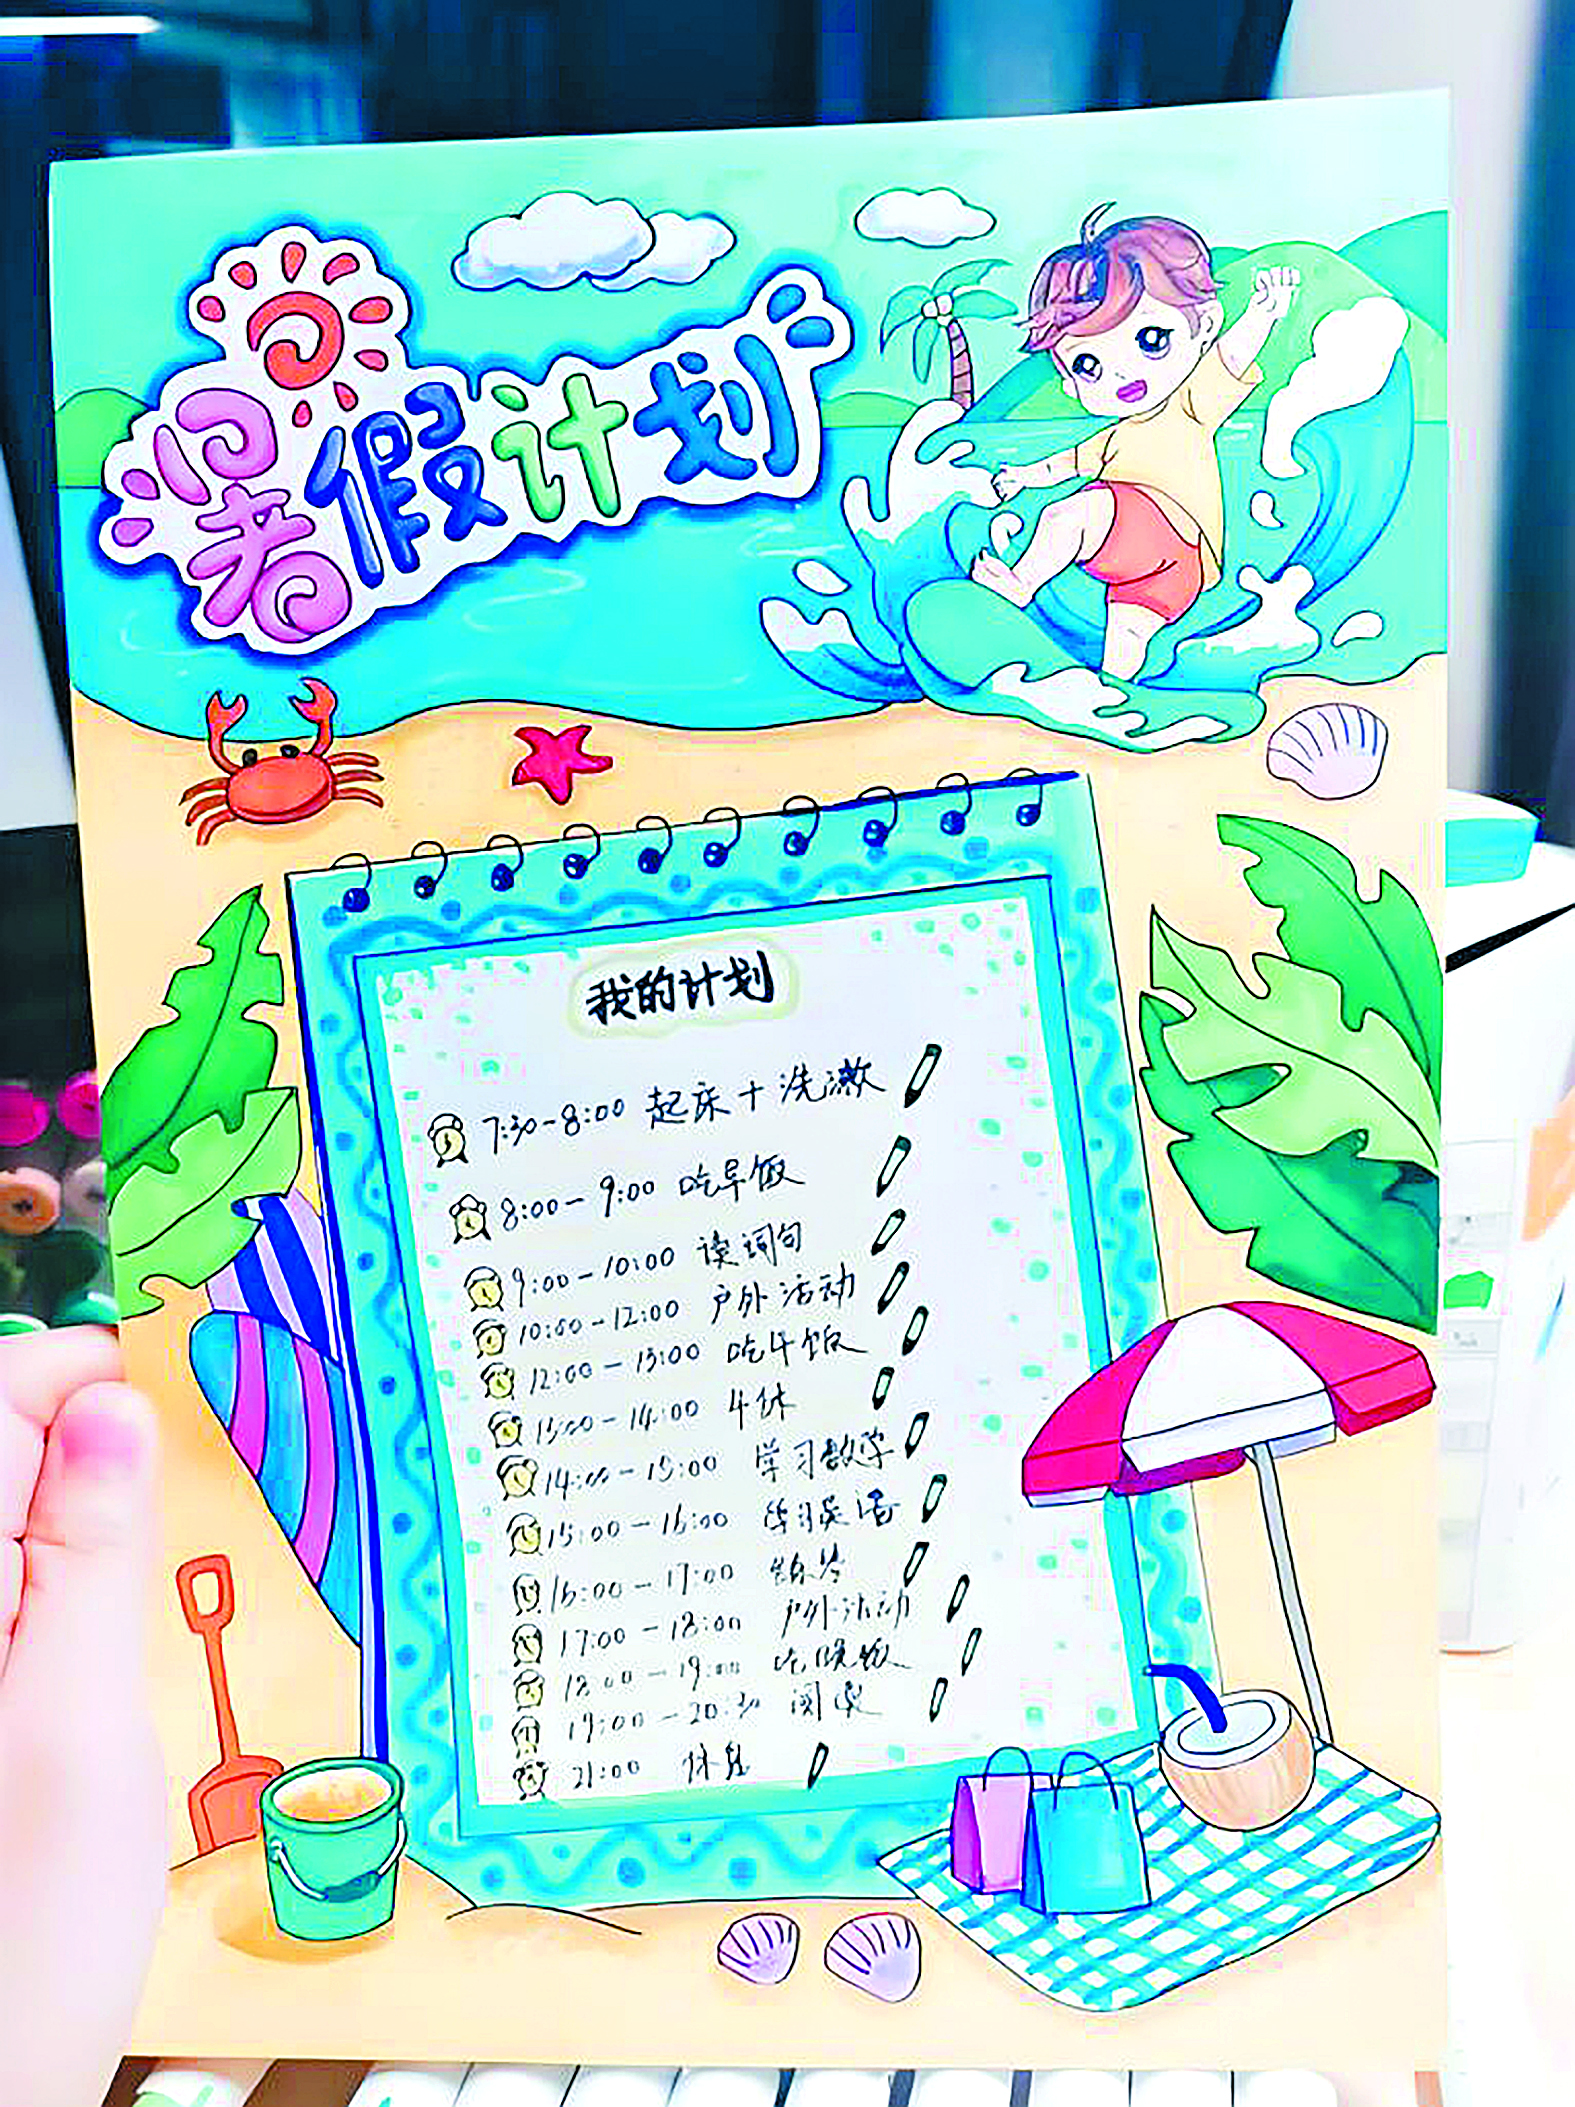 暑假计划
我的计划
7:30-8:00 起床+洗漱
8:00-9:00 吃早饭
9:00-10:00 读词句
10:00-12:00 户外活动
12:00-13:00 吃午饭
13:00-14:00 午休
14:00-15:00 学习数学
15:00-16:00 学习英语
16:00-17:00 练琴
17:00-18:00 户外活动
18:00-19:00 吃晚饭
19:00-20:30 阅读
21:00 休息